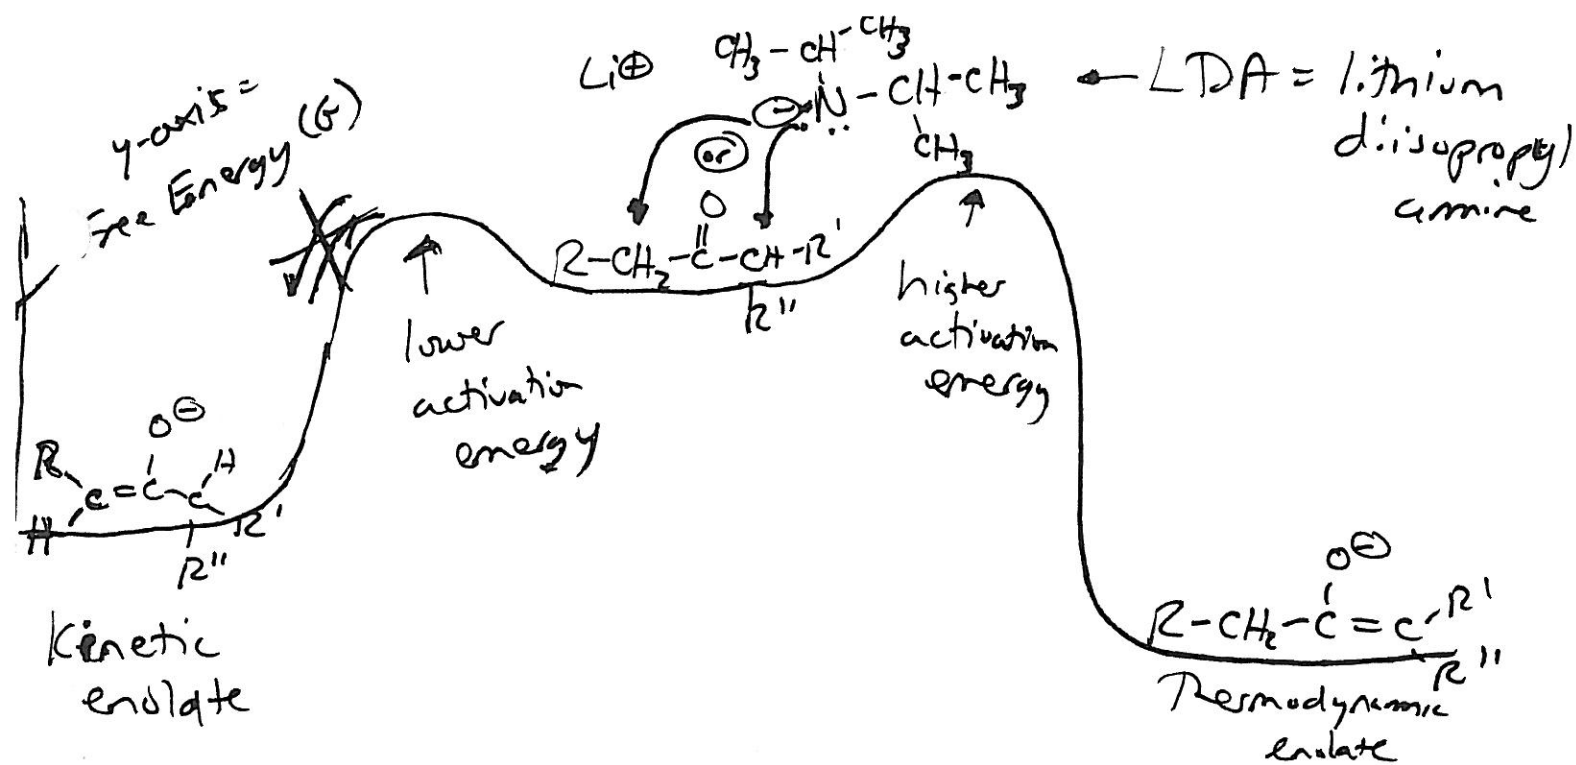 y-axis =
Free Energy (G)
Li⊕
CH₃-CH-CH₃
⊖N-CH-CH₃
CH₃
← LDA = lithium
diisopropyl
amine
or
O
R-CH₂-C-CH-R'
R''
lower
activation
energy
higher
activation
energy
O⊖
R
H
C=C-C
H
R'
R''
Kinetic
enolate
O⊖
R-CH₂-C=C-R'
R''
Thermodynamic
enolate